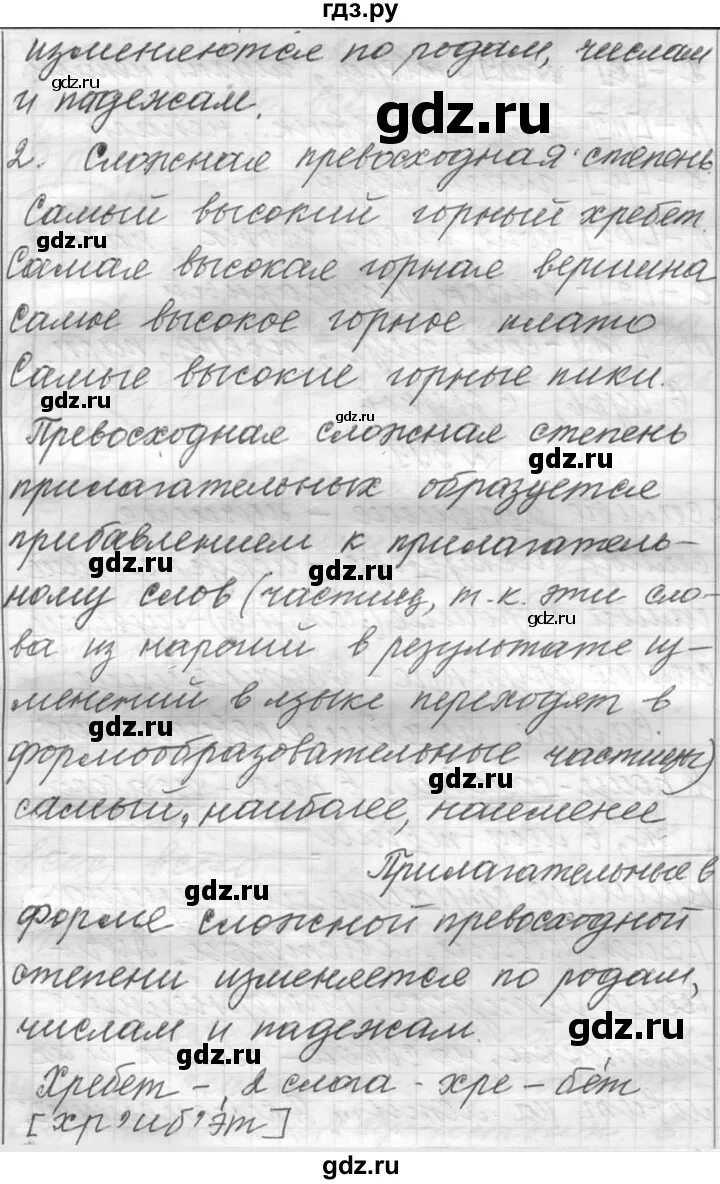 гдз.ру
изменяются по родам, числам
и падежам.
gdz.ru
gdz.ru
2. Сложная превосходная степень.
Самый высокий горный хребет.
gdz.ru
Самая высокая горная вершина
самое высокое горное плато
Самые высокие горные пики.
gdz.ru
gdz.ru
Превосходная сложная степень
gdz.ru
прилагательных образуется
прибавлением к прилагатель-
gdz.ru
gdz.ru
ному слов (частиц, т.к. эти сло-
gdz.ru
ва из наречий в результате из-
менений в языке переходят в
gdz.ru
формообразовательные частицы)
gdz.ru
самый, наиболее, наименее
Прилагательные в
gdz.ru
форме сложной превосходной
степени изменяется по родам,
числам и падежам.
gdz.ru
gdz.ru
Хребет - 2 слога - хре - бе́т
[хр’иб’э́т]
gdz.ru